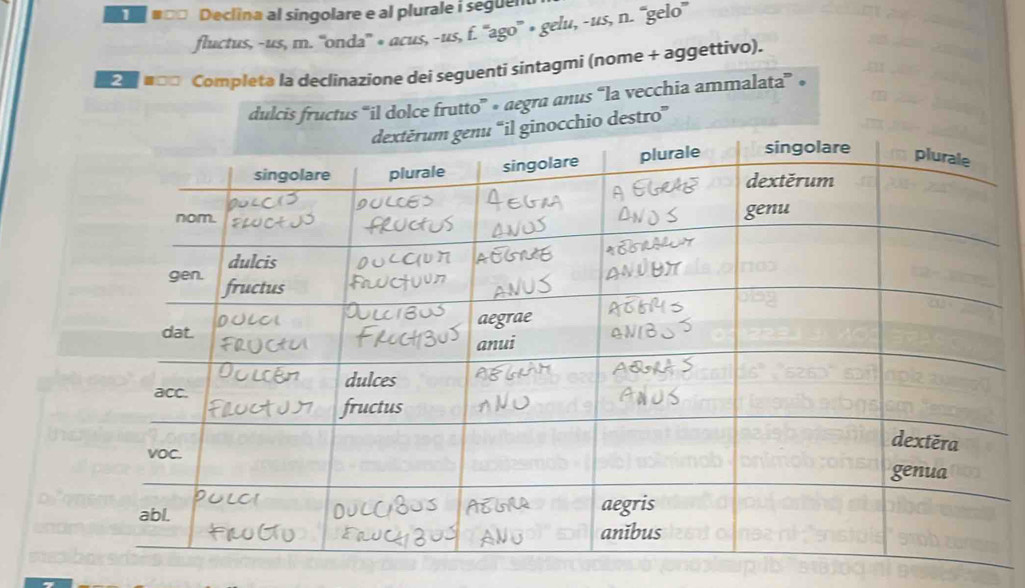 1 Declina al singolare e al plurale i
fluctus, -us, m. “onda” • acus, -us, f. “ago” • gelu, -us, n. “gelo”
2 Completa la declinazione dei seguenti sintagmi (nome + aggettivo).
dulcis fructus “il dolce frutto” • aegra anus “la vecchia ammalata” •
dextĕrum genu “il ginocchio destro”
singolare plurale singolare plurale singolare plurale
DULCIS DULCES AEGRA AEGRAE dextĕrum
nom. FRUCTUS FRUCTUS ANUS ANUS genu
dulcis DULCIUM AEGRAE AEGRARUM
gen. fructus FRUCTUUM ANUS ANUUM
DULCI DULCIBUS aegrae AEGRIS
dat. FRUCTUI FRUCTIBUS anui ANIBUS
DULCEM dulces AEGRAM AEGRAS
acc. FRUCTUM fructus ANU ANUS
dextĕra
voc. genua
DULCI DULCIBUS AEGRA aegris
abl. FRUCTU FRUCTIBUS ANU anĭbus